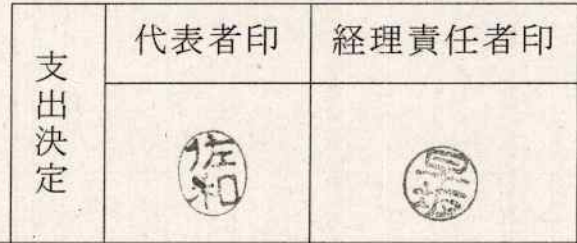 支出決定
代表者印
経理責任者印
佐和